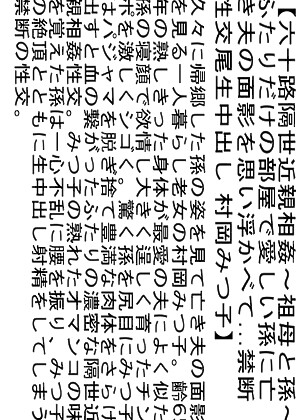 【六十路隔世近親相姦～祖母と孫～
ふたりだけの部屋で愛しい孫に亡
き夫の面影を思い浮かべて…禁断
性交尾生中出し 村岡みつ子】
久々に帰郷した孫の姿を見て亡き夫の面影
を見る一人暮らし老女の村岡みつ子。齢6
年の熟しきった身体が最愛の夫によく似た
孫の寝顔で欲情し大きく逞しく育ったチン
ポを激しくシゴく。驚く孫を尻目にみつ子
はパジャマを脱ぎ捨て豊満な肉体をさらけ
出すと血の繋がったふたりの濃密な隔世近
親相姦性交。みつ子の熟れたオマンコの味
を覚えた孫は一心不乱に腰を振り、みつ子
の絶頂とともに生中出し射精をしてしまう
禁断の性交。